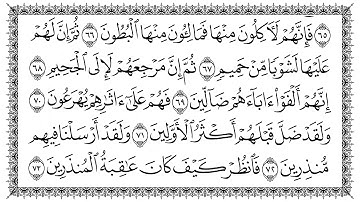 ٦٥ فَإِنَّهُمْ لَءَاكِلُونَ مِنْهَا فَمَالِـُٔونَ مِنْهَا ٱلْبُطُونَ ٦٦ ثُمَّ إِنَّ لَهُمْ
عَلَيْهَا لَشَوْبًا مِّنْ حَمِيمٍ ٦٧ ثُمَّ إِنَّ مَرْجِعَهُمْ لَإِلَى ٱلْجَحِيمِ ٦٨
إِنَّهُمْ أَلْفَوْا۟ ءَابَآءَهُمْ ضَآلِّينَ ٦٩ فَهُمْ عَلَىٰٓ ءَاثَـٰرِهِمْ يُهْرَعُونَ ٧٠
وَلَقَدْ ضَلَّ قَبْلَهُمْ أَكْثَرُ ٱلْأَوَّلِينَ ٧١ وَلَقَدْ أَرْسَلْنَا فِيهِم
مُّنذِرِينَ ٧٢ فَٱنظُرْ كَيْفَ كَانَ عَـٰقِبَةُ ٱلْمُنذَرِينَ ٧٣